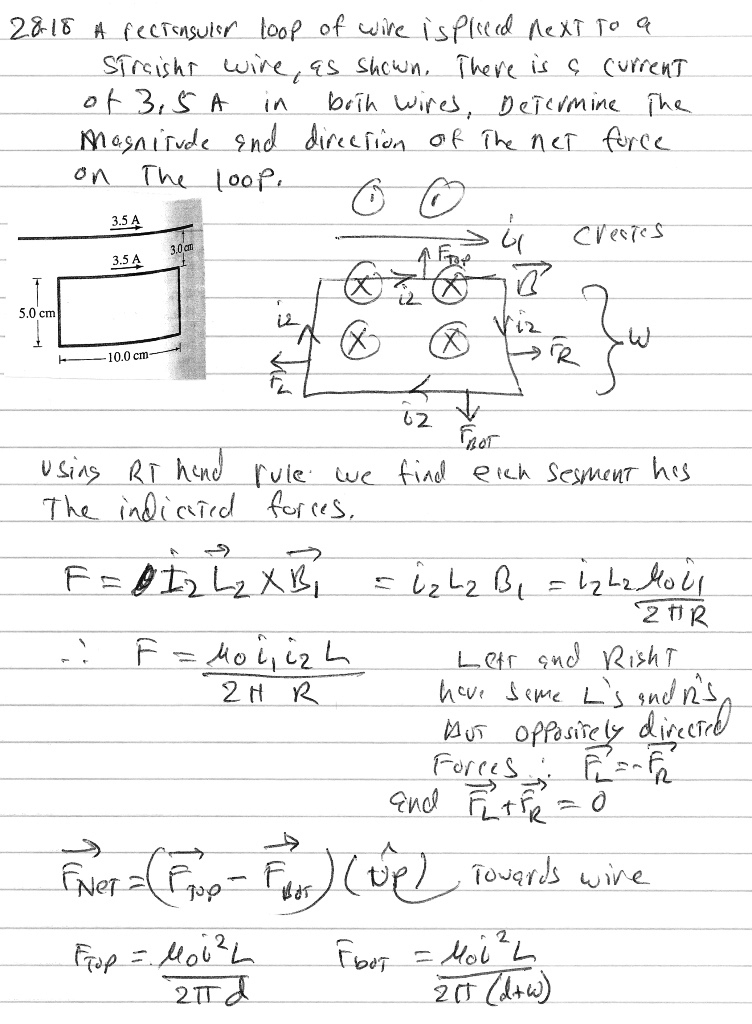 28-18 A rectangular loop of wire is placed next to a
straight wire, as shown. There is a current
of 3.5 A in both wires. Determine the
magnitude and direction of the net force
on the loop.
3.5 A
3.0 cm
3.5 A
5.0 cm
10.0 cm
i1 creates
FTop
B
i2
i2
i2
W
FR
FL
i2
FBOT
using RT hand rule we find each segment has
the indicated forces.
F = I2 L2 × B1 = i2 L2 B1 = i2 L2 μ0 i1
2πR
∴ F = μ0 i1 i2 L
2π R
Left and Right
have same L's and R's
But oppositely directed
Forces ∴ FL = -FR
and FL + FR = 0
FNET = (FTOP - FBOT) (up) Towards wire
FTOP = μ0 i² L
2π d
Fbot = μ0 i² L
2π (d+w)